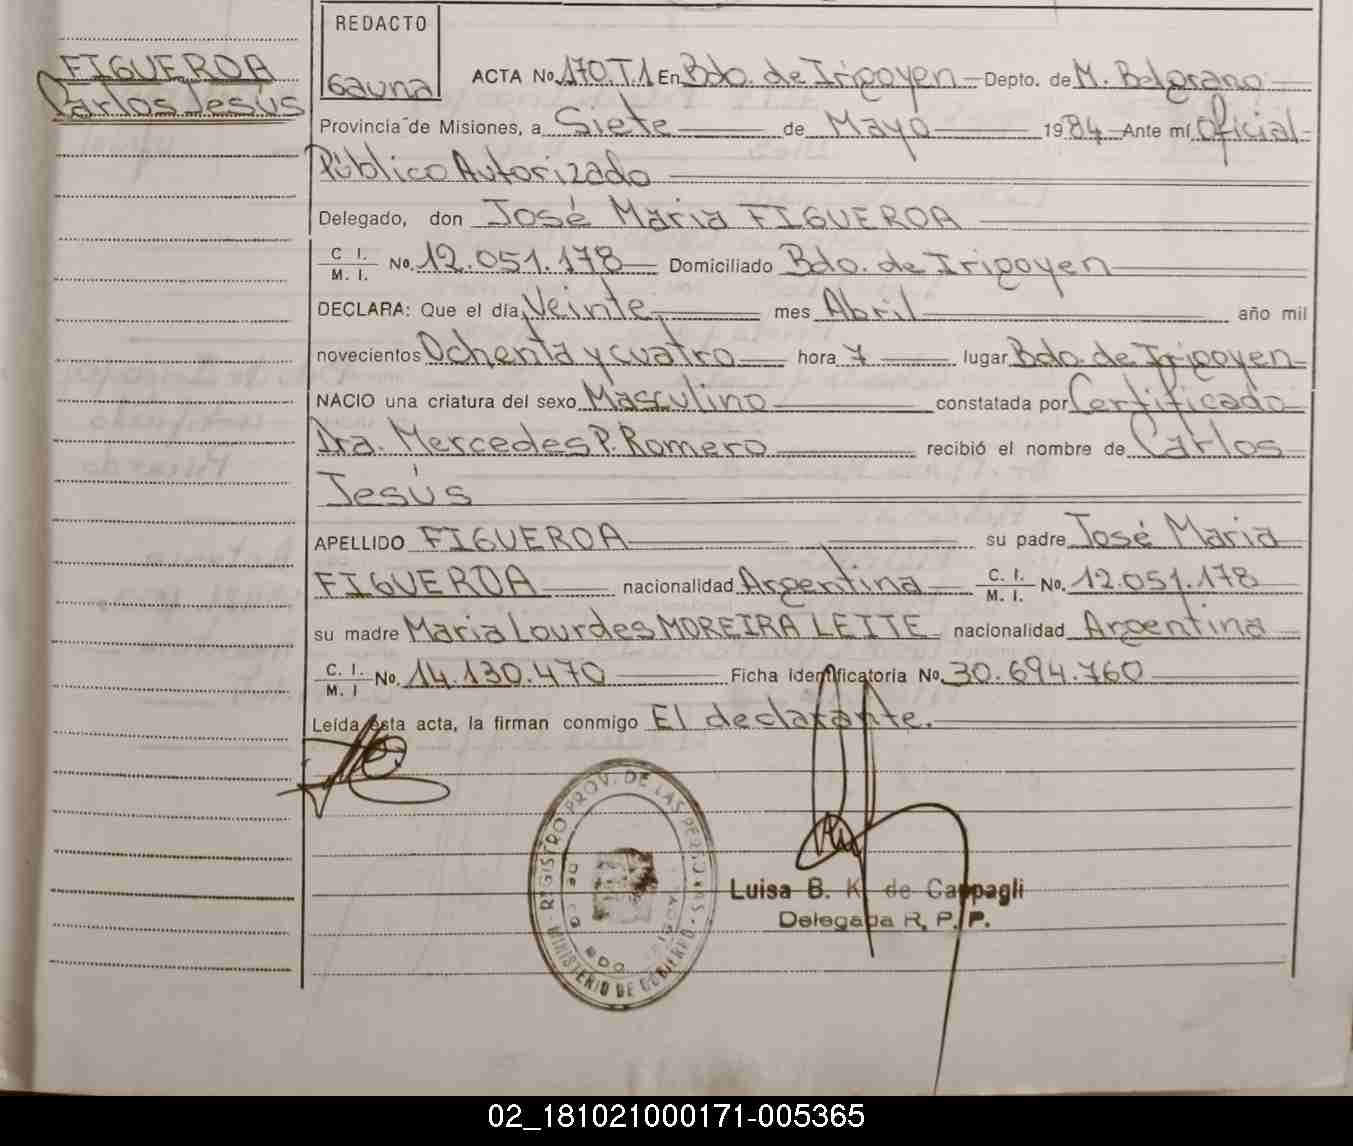 REDACTO
Gauna
FIGUEROA
Carlos Jesús
ACTA No. 170.T.1 En Bdo. de Irigoyen Depto. de M. Belgrano
Provincia de Misiones, a Siete de Mayo 1984 Ante mí, Oficial
Público Autorizado
Delegado, don José Maria FIGUEROA
C. I. M. I. No. 12.051.178 Domiciliado Bdo. de Irigoyen
DECLARA: Que el día Veinte mes Abril año mil
novecientos Ochenta y cuatro hora 7 lugar Bdo. de Irigoyen
NACIO una criatura del sexo Masculino constatada por Certificado
Dra. Mercedes P. Romero recibió el nombre de Carlos
Jesús
APELLIDO FIGUEROA su padre José Maria
FIGUEROA nacionalidad Argentina C. I. M. I. No. 12.051.178
su madre Maria Lourdes MOREIRA LEITE nacionalidad Argentina
C. I. M. I No. 14.130.470 Ficha identificatoria No. 30.694.760
Leída esta acta, la firman conmigo El declarante.
REGISTRO PROV. DE LAS PERSONAS
MINISTERIO DE GOBIERNO
Luisa B. K. de Cappagli
Delegada R. P. P.
02_181021000171-005365